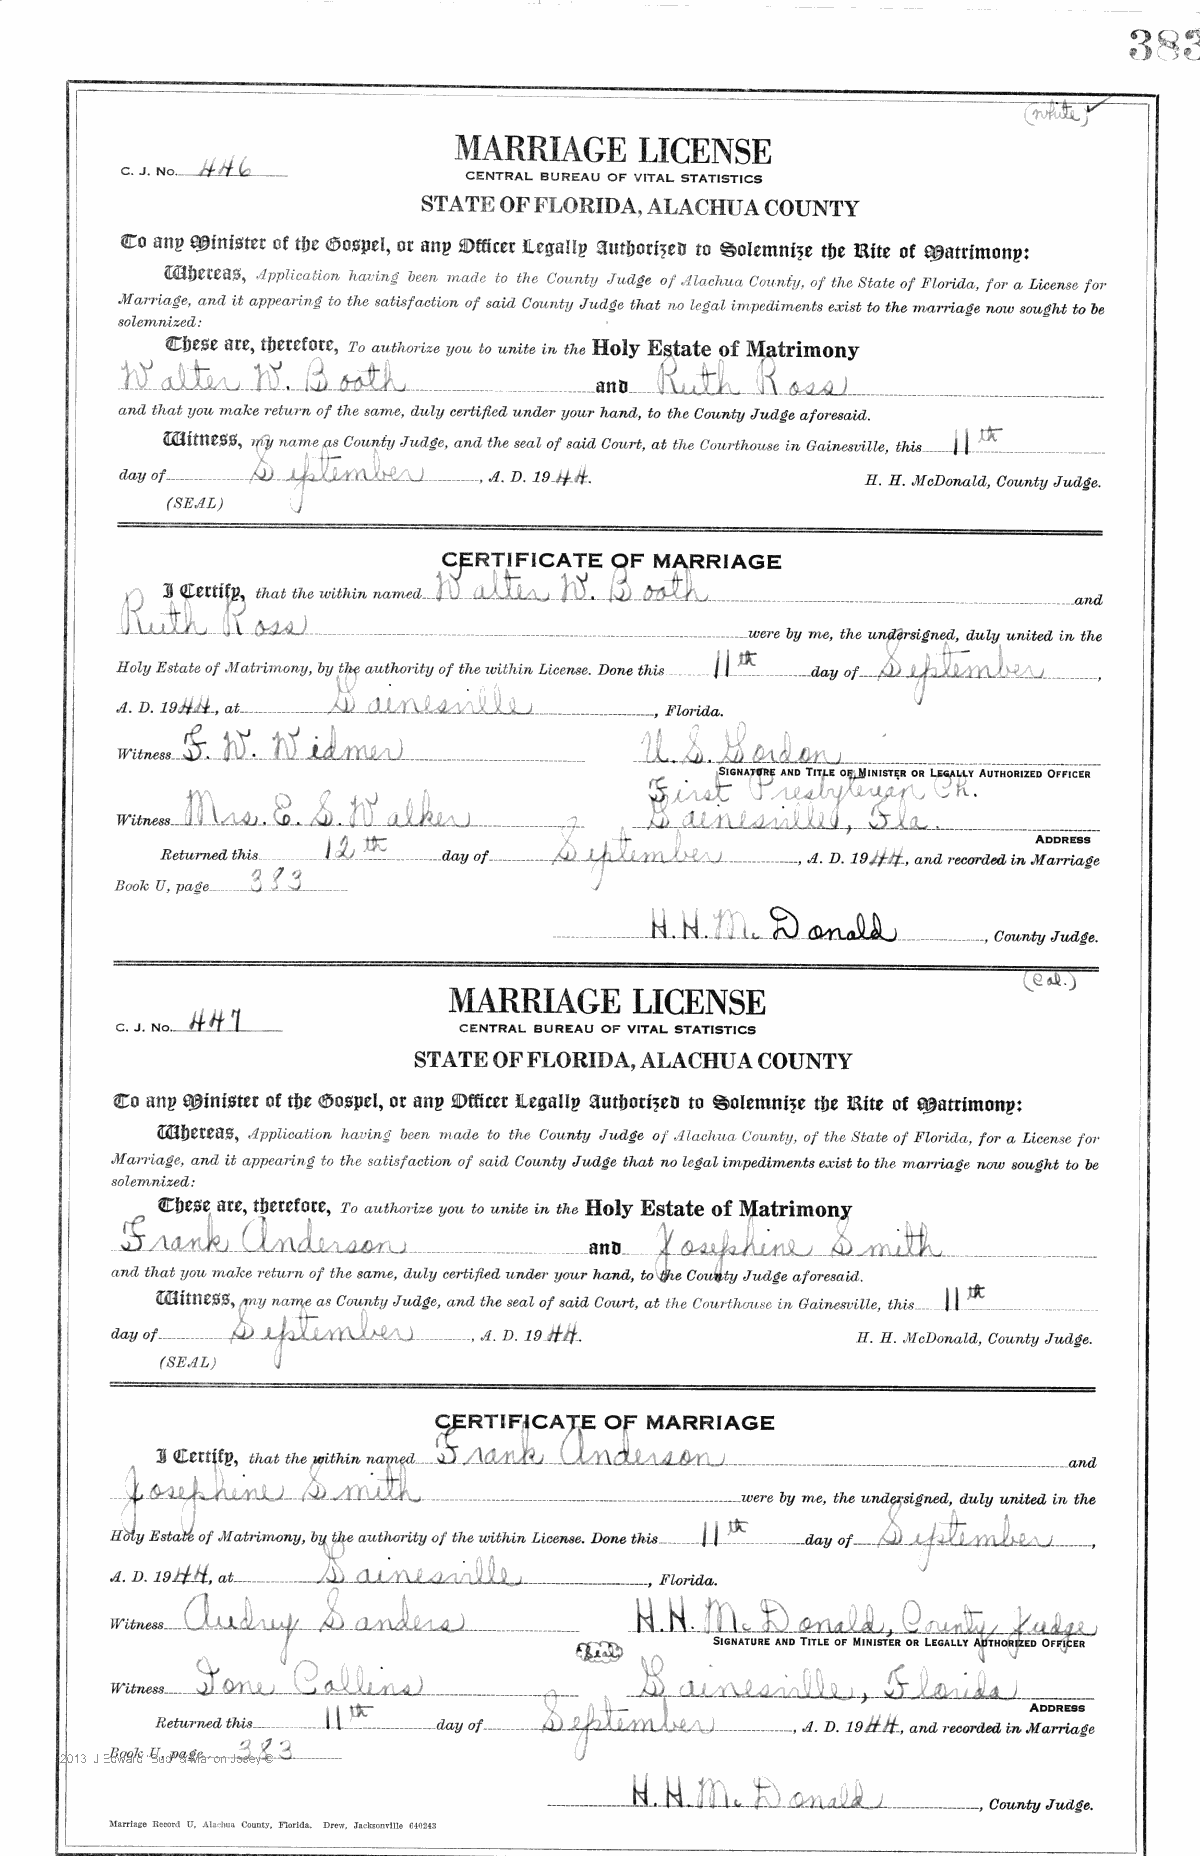 383
(white) ✓
MARRIAGE LICENSE
C. J. No. 446
CENTRAL BUREAU OF VITAL STATISTICS
STATE OF FLORIDA, ALACHUA COUNTY
To any Minister of the Gospel, or any Officer Legally Authorized to Solemnize the Rite of Matrimony:
Whereas, Application having been made to the County Judge of Alachua County, of the State of Florida, for a License for
Marriage, and it appearing to the satisfaction of said County Judge that no legal impediments exist to the marriage now sought to be
solemnized:
These are, therefore, To authorize you to unite in the Holy Estate of Matrimony
Walter W. Booth and Ruth Ross
and that you make return of the same, duly certified under your hand, to the County Judge aforesaid.
Witness, my name as County Judge, and the seal of said Court, at the Courthouse in Gainesville, this 11th
day of September, A. D. 1944. H. H. McDonald, County Judge.
(SEAL)
CERTIFICATE OF MARRIAGE
I Certify, that the within named Walter W. Booth and
Ruth Ross were by me, the undersigned, duly united in the
Holy Estate of Matrimony, by the authority of the within License. Done this 11th day of September,
A. D. 1944, at Gainesville, Florida.
Witness F. W. Widmer U. S. Gordon
SIGNATURE AND TITLE OF MINISTER OR LEGALLY AUTHORIZED OFFICER
First Presbyterian Ch.
Witness Mrs. E. S. Walker Gainesville, Fla.
ADDRESS
Returned this 12th day of September, A. D. 1944, and recorded in Marriage
Book U, page 383
H. H. McDonald, County Judge.
(Col.)
MARRIAGE LICENSE
C. J. No. 447
CENTRAL BUREAU OF VITAL STATISTICS
STATE OF FLORIDA, ALACHUA COUNTY
To any Minister of the Gospel, or any Officer Legally Authorized to Solemnize the Rite of Matrimony:
Whereas, Application having been made to the County Judge of Alachua County, of the State of Florida, for a License for
Marriage, and it appearing to the satisfaction of said County Judge that no legal impediments exist to the marriage now sought to be
solemnized:
These are, therefore, To authorize you to unite in the Holy Estate of Matrimony
Frank Anderson and Josephine Smith
and that you make return of the same, duly certified under your hand, to the County Judge aforesaid.
Witness, my name as County Judge, and the seal of said Court, at the Courthouse in Gainesville, this 11th
day of September, A. D. 1944. H. H. McDonald, County Judge.
(SEAL)
CERTIFICATE OF MARRIAGE
I Certify, that the within named Frank Anderson and
Josephine Smith were by me, the undersigned, duly united in the
Holy Estate of Matrimony, by the authority of the within License. Done this 11th day of September,
A. D. 1944, at Gainesville, Florida.
Witness Audrey Sanders H. H. McDonald, County Judge
SIGNATURE AND TITLE OF MINISTER OR LEGALLY AUTHORIZED OFFICER
(Seal)
Witness Ione Collins Gainesville, Florida
ADDRESS
Returned this 11th day of September, A. D. 1944, and recorded in Marriage
Book U, page 383
H. H. McDonald, County Judge.
Marriage Record U, Alachua County, Florida. Drew, Jacksonville 640243